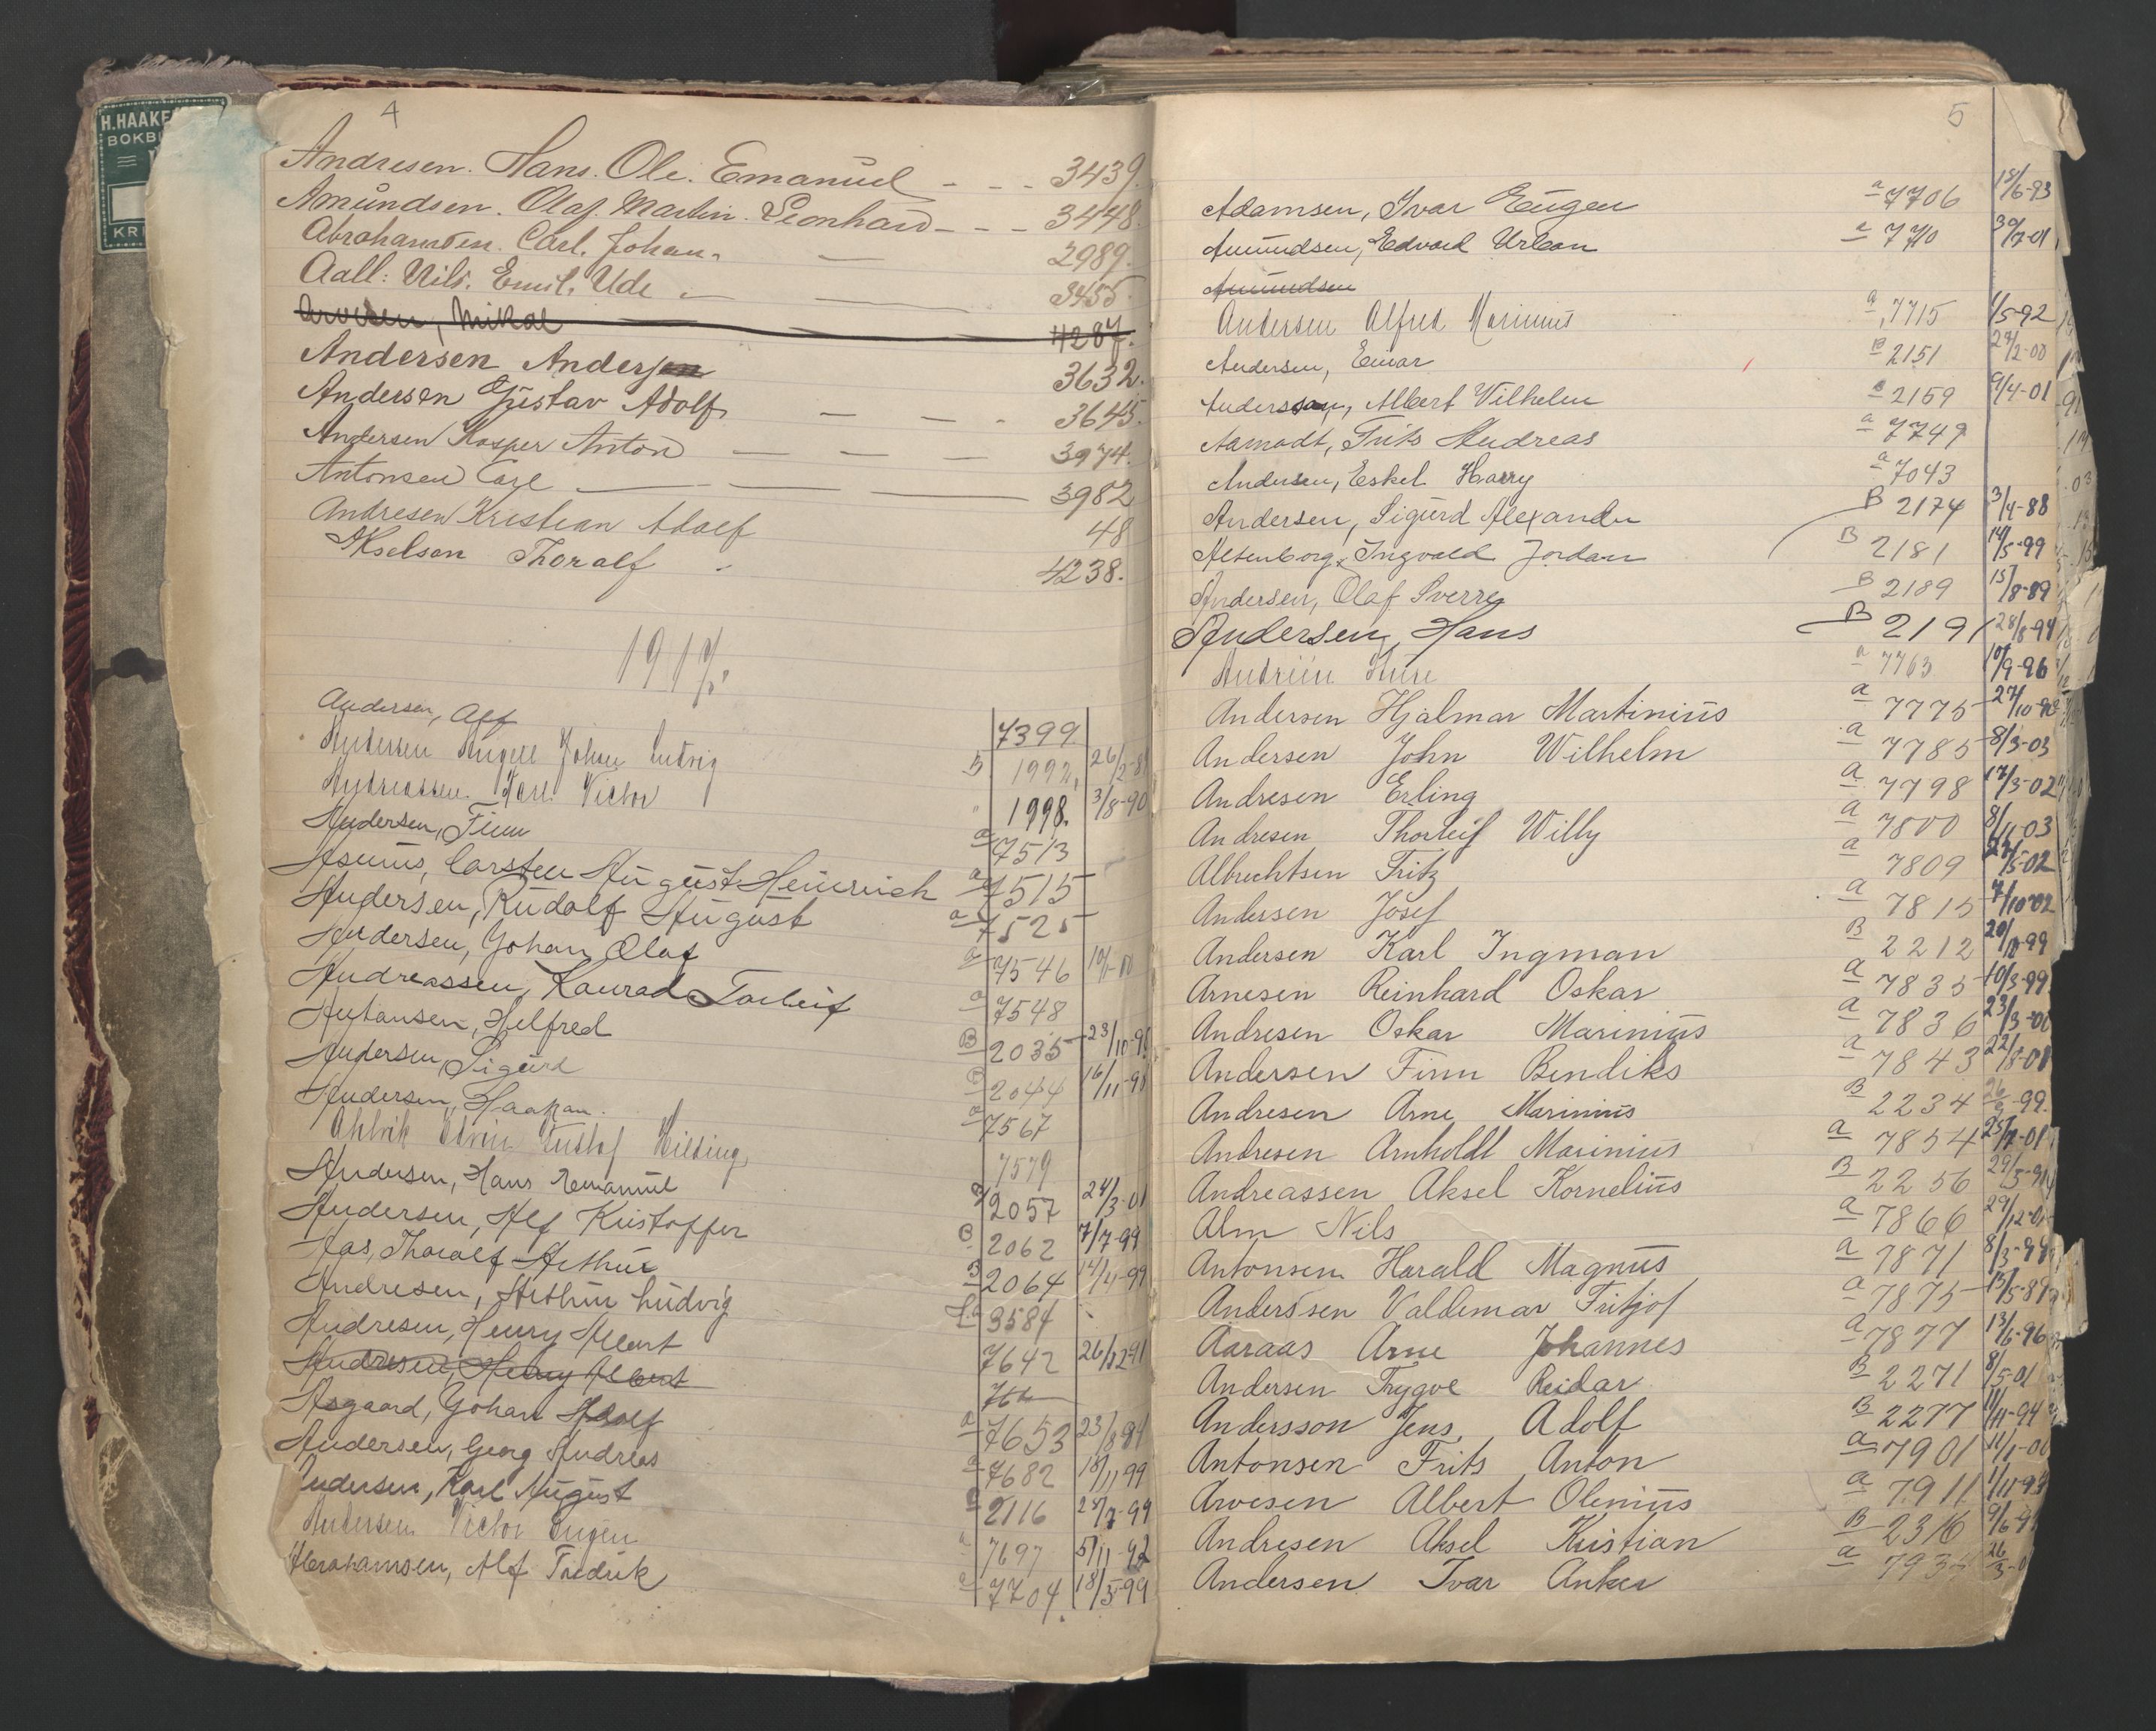 H.HAAKE
BOKBI
KRI
4
Andresen. Hans. Ole. Emanuel - - - 3439.
Amundsen. Olaf. Martin. Leonhard - - - 3448.
Abrahamsen. Carl. Johan. — 2989.
Aall: Nils. Emil. Ude — — 3455.
Arvesen, Mikal 4287.
Andersen Anders 3632.
Andersen Gustav Adolf, — — - 3645.
Andersen Kasper Anton — — — 3974.
Antonsen Carl — — — 3982
Andresen Kristian Adolf 48
Akselsen Thoralf - 4238.
Andersen, Alf 7399
Andersen Angell Johan Ludvig B 1992, 26/2-8
Andreassen Karl Victor " 1998. 3/8-90
Andersen, Finn a 7513
Asmus, Carsten August Heinrich a 7515
Andersen, Rudolf August a 7525
Andersen, Johan Olaf a 7546
Andreassen, Konrad Torleif a 7548
Helfred B 2035 23/10-98
Andersen, Sigurd B 2044 16/11-98
Andersen, Haakon. a 7567
Edvin Gustaf Hilding, 7579
Andersen, Hans Emanuel B 2057 24/3-01
Andersen, Alf Kristoffer B 2062 7/7-99
Aas, Thoralf Arthur B 2064 14/4-99
Andresen, Arthur Ludvig 3584
Andresen, Henry Albert 7642 26/12 91
Andresen, Henry Albert 764
Asgaard, Johan Adolf a 7653 23/8 91
Andersen, Georg Andreas a 7682 18/11 99
Andersen, Karl August B 2116 28/7-99
Andersen Victor Eugen a 7697 5/11-92
Abrahamsen, Alf Fredrik a 7704. 18/5-99
5
Adamsen, Ivar Eugen a 7706 18/6-93
Amundsen, Edvard Urban a 7710 30/7-01
Amundsen
Andersen Alfred Marinius a 7715 1/5-92
Andersen, Einar B 2151 29/2-00
Anderssen, Albert Vilhelm B 2159 9/4-01
Aamodt, Frits Andreas a 7749
Andersen, Eskel Harry a 7043
Andersen, Sigurd Alexander B 2174 3/4-88
Altenborg, Ingvald Jordan B 2181 14/5-99
Andersen, Olaf Sverre B 2189 15/8-89
Andersen, Hans B 2191 28/8-94
a 7763 10/9-96
Andersen Hjalmar Martinius a 7775 27/10-98
Andersen John Wilhelm a 7785 8/3-03
Andresen Erling a 7798 17/3-02
Andresen Thorleif Willy a 7800 8/11-03
Albrechtsen Fritz a 7809 22/5-02
Andersen Josef a 7815 7/10-02
Andersen Karl Ingman B 2212 20/10-99
Arnesen Reinhard Oskar a 7835 10/3-99
Andresen Oskar Marinius a 7836 23/3-00
Andersen Finn Bendiks a 7843 22/8-01
Andresen Arne Marinius B 2234 26/9-99.
Andresen Arnholdt Marinius a 7854 25/7-01
Andreassen Aksel Kornelius B 2256 29/5-91
Alm Nils a 7866 29/12-01
Antonsen Harald Magnus a 7871 8/3-99
Anderssen Valdemar Fritjof a 7875 15/5-89
Aaraas Arne Johannes a 7877 13/6-96
Andersen Trygve Reidar B 2271 8/5-01
Andersson Jens Adolf B 2277 11/11-94
Antonsen Frits Anton a 7901 11/1-00
Arvesen Albert Olenius a 7911 1/11-93
Andresen Aksel Kristian B 2316 9/6-9
Andersen Ivar Anker a 793 26/3-0